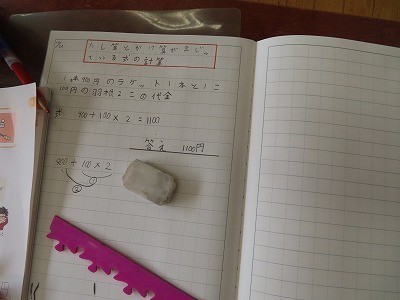 たし算とかけ算がまじっ
ている式の計算
1本900円のラケット1本と1こ
100円の羽根2この代金
式 900+100×2=1100
答え 1100円
900+100×2
①
②